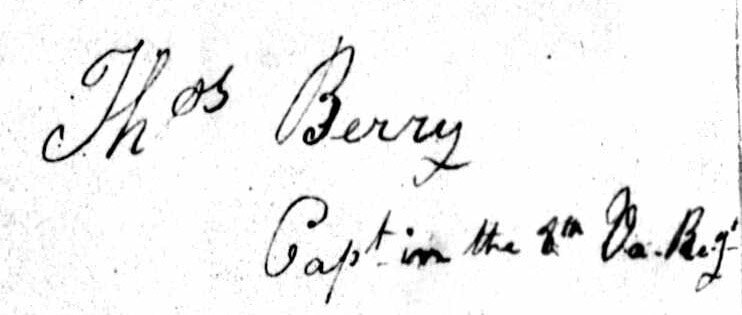 Thos Berry
Capt in the 8th Va. Regt